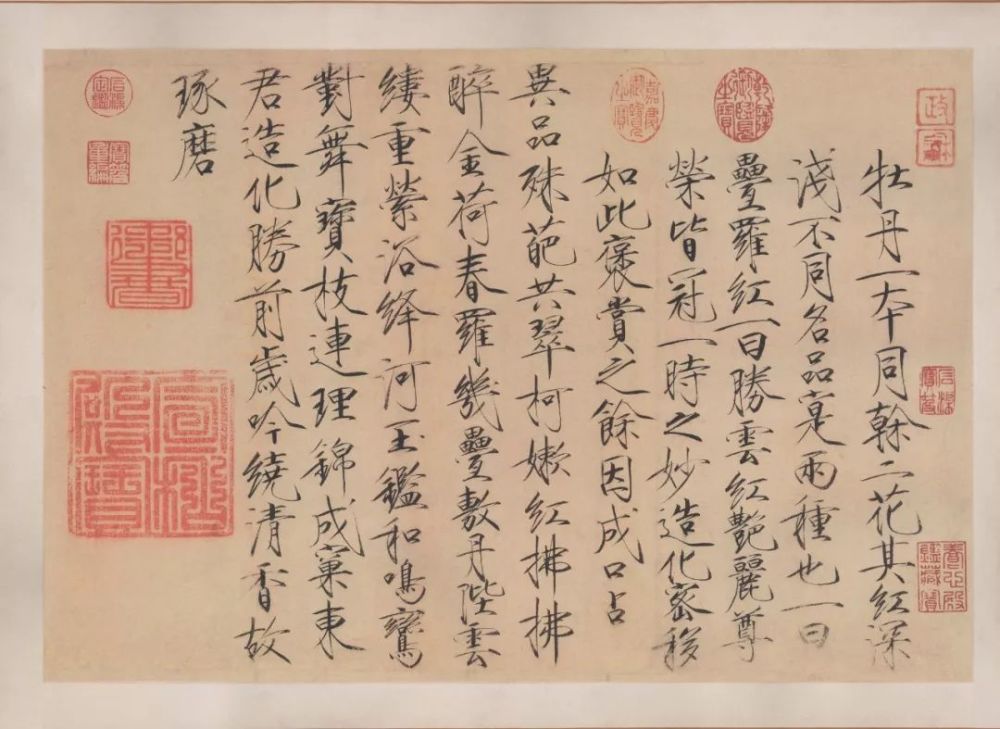 牡丹一本同幹二花其紅深
淺不同名品寔兩種也一曰
疊羅紅一曰勝雲紅艷麗尊
榮皆冠一時之妙造化密移
如此褒賞之餘因成口占
異品殊葩共翠柯嫩紅拂拂
醉金荷春羅幾疊敷丹陛雲
縷重縈浴絳河玉鑑和鳴鸞
對舞寶枝連理錦成窠東
君造化勝前歲吟繞清香故
琢磨
石渠寶笈
養心殿鑑藏寶
乾隆御覽之寶
嘉慶御覽之寶
石渠定鑑
寶笈重編
御書